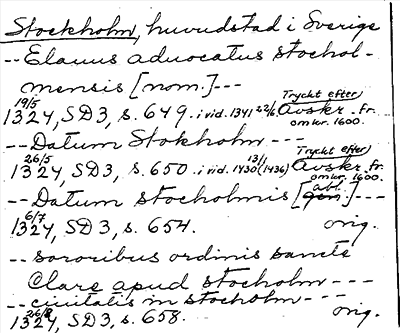 Stockholm, huvudstad i Sverige
-- Elauus aduocatus stochol-
mensis [nom.] ---
19/5 Tryckt efter
1324, SD3, s. 649. i vid. 1341 22/6 Avskr. fr.
omkr. 1600.
-- Datum Stokholm ---
26/5 13/1 Tryckt efter
1324, SD3, s. 650. i vid. 1430 (1436) Avskr. fr.
omkr. 1600.
-- Datum stocholmis [gen.] abl. ---
6/7
1324, SD3, s. 654. orig.
-- sororibus ordinis sancte
Clare apud stocholm ---
-- ciuitatis in stocholm ---
26/8
1324, SD3, s. 658. orig.